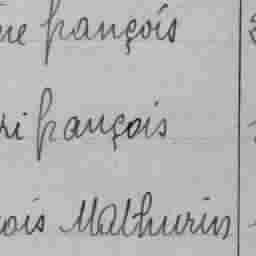 françois
ri françois
ois Mathurin